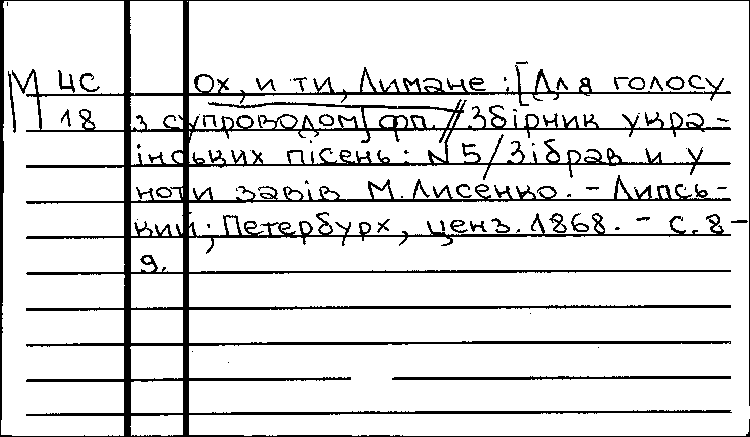 М ЦС Ох, и ти, Лимане : [Для голосу
18 з супроводом] фп. // Збірник укра-
їнських пісень : N 5 / Зібрав и у
ноти завів М. Лисенко. – Липсь-
кий; Петербурх, ценз. 1868. – С. 8-
9.